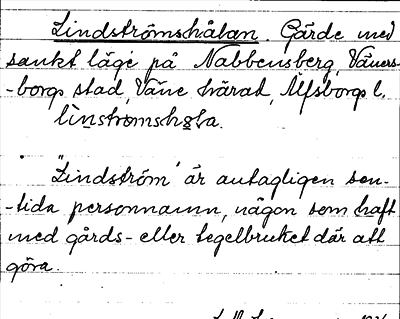 Lindströmshålan. Gärde med
sankt läge på Nabbensberg, Väners-
-borgs stad, Väne härad, Älfsborgs l.
linstrømshɷla.
"Lindström" är antagligen sen-
-tida personnamn, någon som haft
med gårds- eller tegelbruket där att
göra.